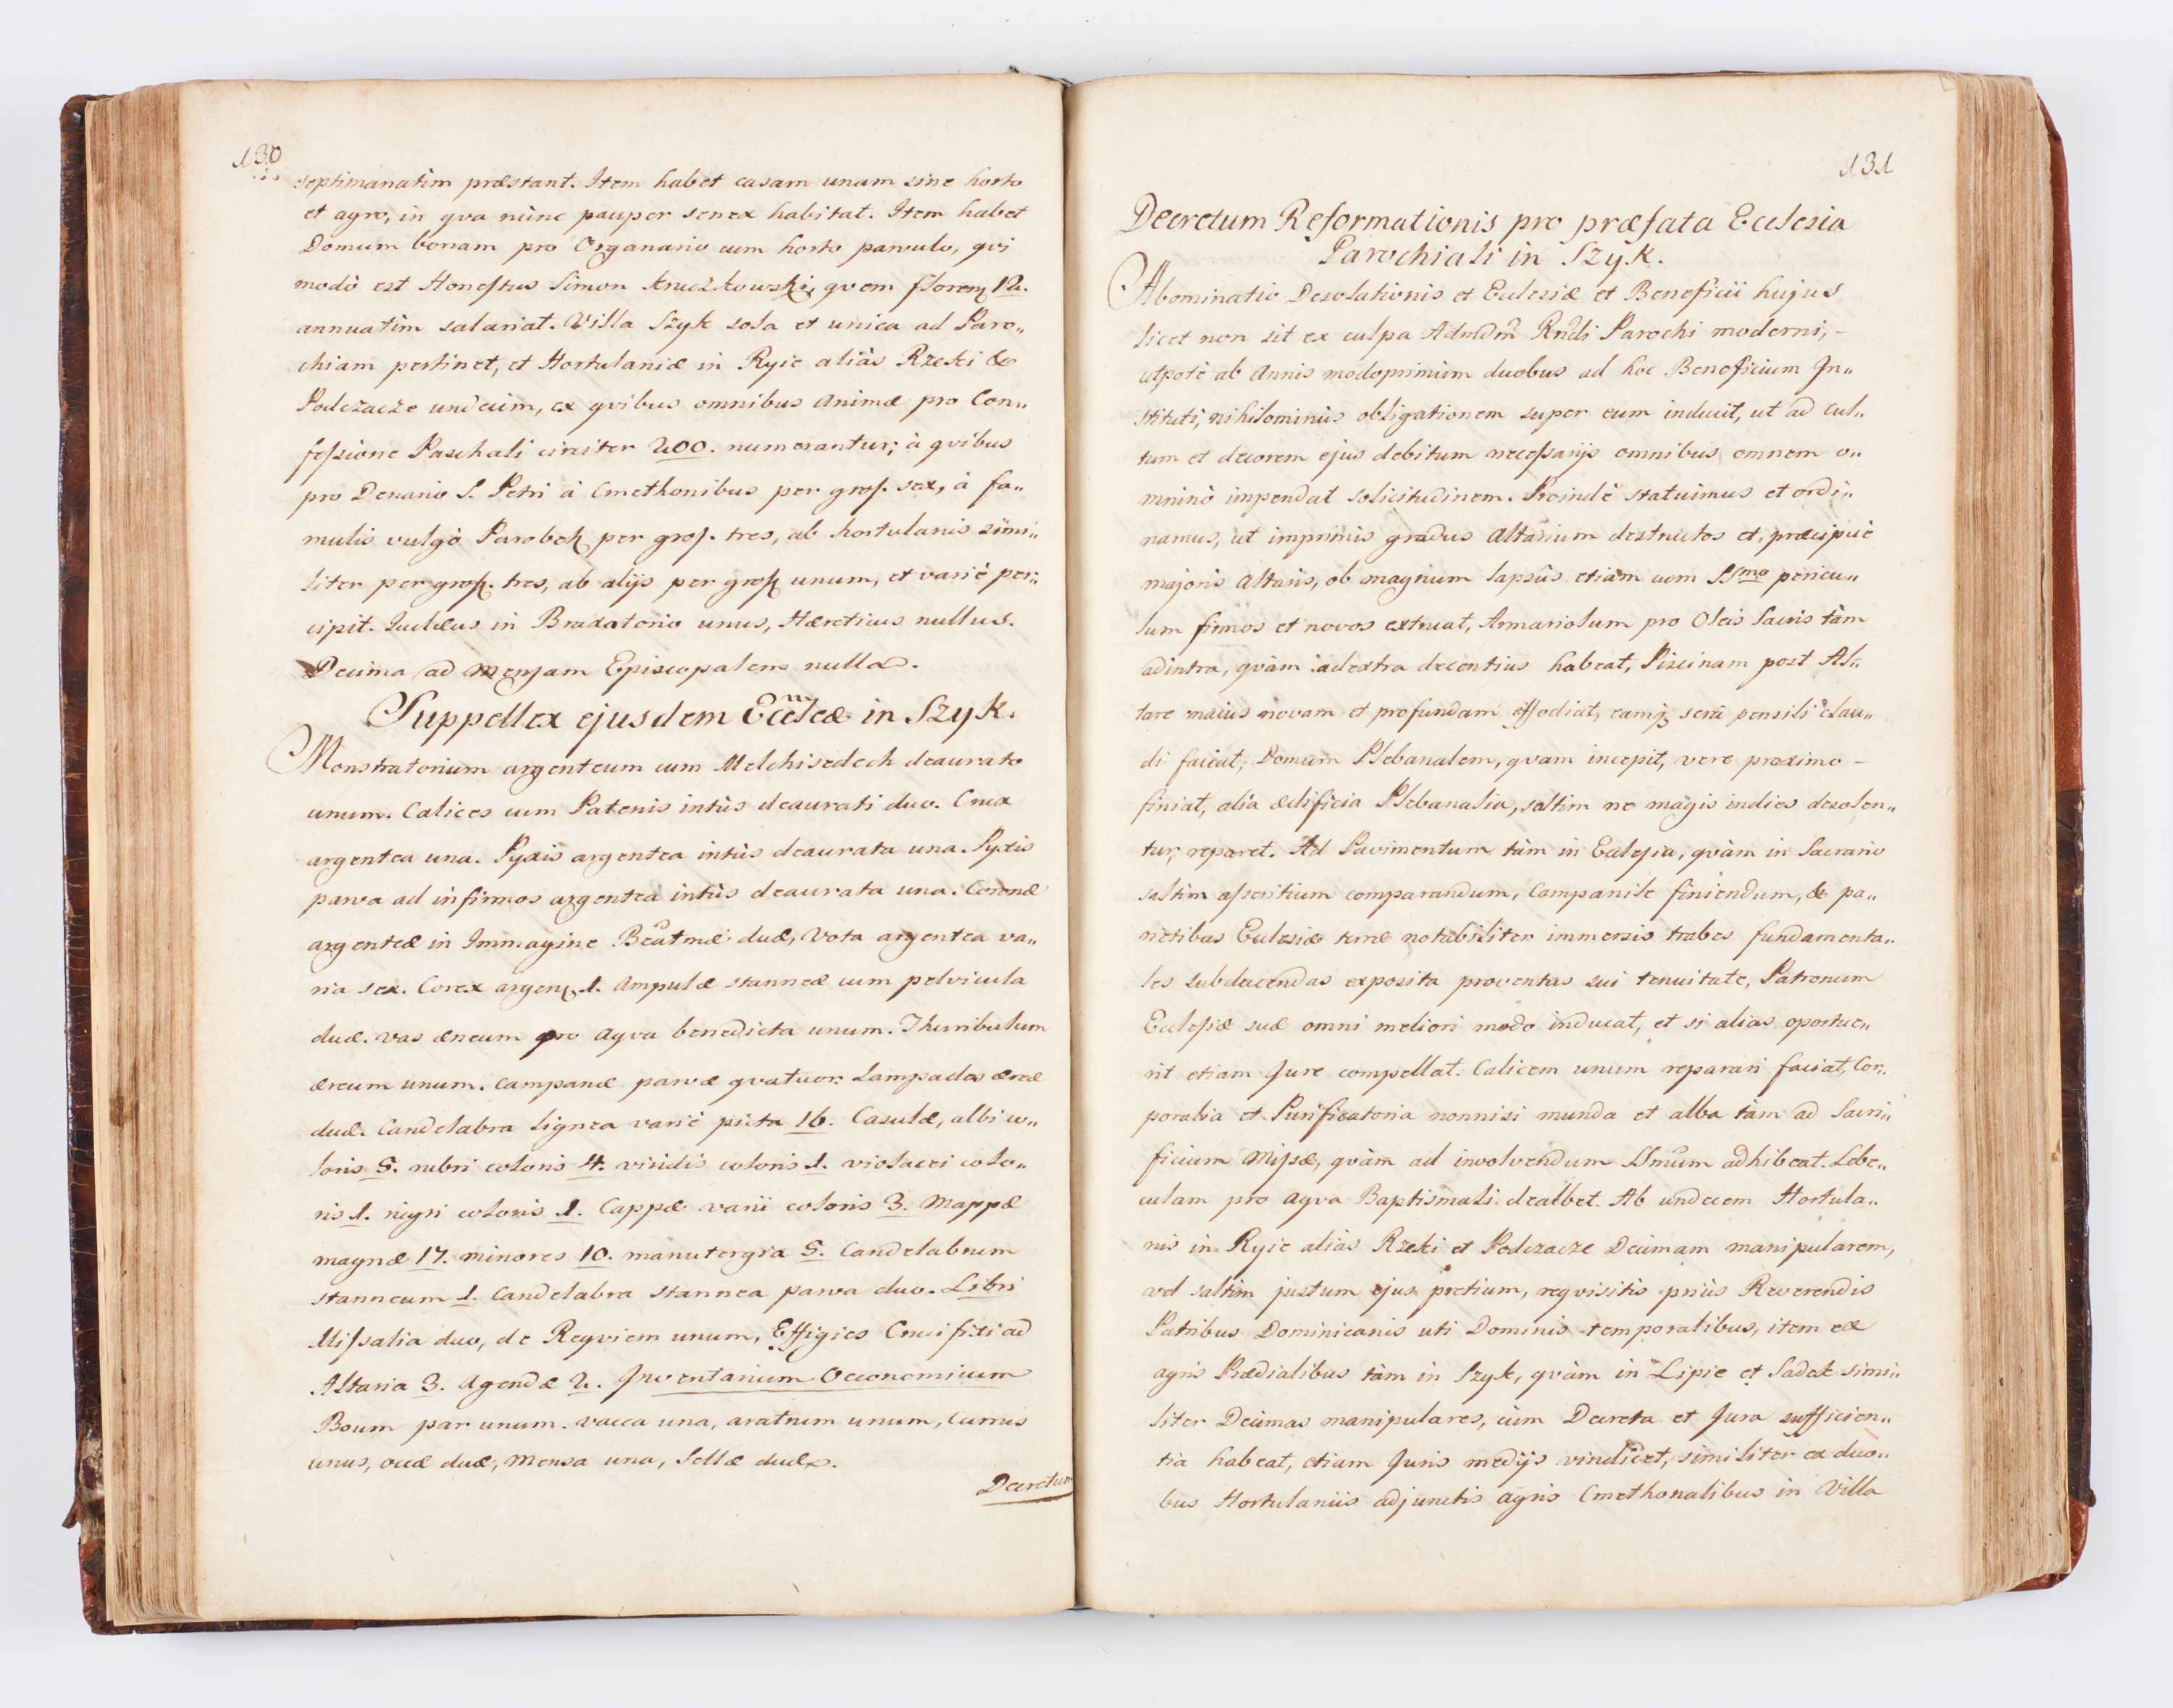 130
septimanatim præstant. Item habet casam unam sine horto
et agro, in qva nùnc pauper senex habitat. Item habet
Domum bonam pro Organario cum horto parvulo, qvi
modò est Honestus Simon Kruszkowski, qvem floren 12.
annuatìm salariat. Villa Szyk sola et unica ad Paro„
chiam pertinet, et Hortulaniæ in Ryie aliàs Rzeki &
Podczacze undecim, ex qvibus omnibus animæ pro Con„
fessione Paschali circiter 200. numerantur; à qvibus
pro Denario S. Petri à Cmethonibus per gros. sex, à fa„
mulis vulgò Parobek per gros. tres, ab hortulanis simi„
liter per gros. tres, ab alijs per gros unum, et variè per„
cipit. Judæus in Braxatorio unus, Hæreticus nullus.
Decima ad Mensam Episcopalem nulla.
Suppellex ejusdem Eccleæ in Szyk.
Monstratorium argenteum cum Melchisedech deaurato
unum. Calices cum Patenis intùs deaurati duo. Crux
argentea una. Pyxis argentea intùs deaurata una. Pyxis
parva ad infirmos argentea intùs deaurata una. Coronæ
argenteæ in Immagine Beatmæ duæ, Vota argentea va„
ria sex. Corex argen 1. Ampulæ stanneæ cum pelvicula
duæ. Vas æneum pro aqva benedicta unum. Thuribulum
æreum unum. Campanæ parvæ qvatuor. Lampades æreæ
duæ. Candelabra lignea variè picta 16. Casulæ, albi co„
loris 5. rubri coloris 4. viridis coloris 1. violacei colo„
ris 1. nigri coloris 1. Cappæ varii coloris 3. Mappæ
magnæ 17. minores 10. manutergia 5. Candelabrum
stanneum 1. Candelabra stannea parva duo. Libri
Missalia duo, de Reqviem unum, Effigies Crucifixi ad
Altaria 3. Agendæ 2. Inventarium Oeconomicum
Boum par unum. vacca una, aratrum unum, Currus
unus, ocæ duæ, Mensa una, Sellæ duæ.
Decretum
131
Decretum Reformationis pro præfata Ecclesia
Parochiali in Szyk.
Abominatio Desolationis et Ecclesiæ et Beneficii hujus
licet non sit ex culpa Admdm Rndi Parochi moderni, –
utpotè ab Annis modoprimùm duobus ad hoc Beneficium In„
stituti, nihilominùs obligationem super eum inducit, ut ad cul„
tum et decorem ejus debitum necessarijs omnibus omnem o„
mninò impendat solicitudinem. Proindè statuimus et ordi„
namus, ut imprimis gradus altarium destructos et præcipuè
majoris altaris, ob magnum lapsûs etiàm cum SSmo pericu„
lum firmos et novos extruat, Armariolum pro Oleis Sacris tàm
adintra, qvàm adextra decentius habeat, Piscinam post Al„
tare maius novam et profundam effodiat, eamq serâ pensili clau„
di faciat, Domum Plebanalem, qvam incepit, vere proximo –
finiat, alia ædificia Plebanalia, saltim ne magis indies desolen„
tur, reparet. Ad Pavimentum tàm in Ecclesia, qvàm in Sacrario
saltim asseritium comparandum, Campanile finiendum, & pa„
rietibus Ecclesiæ terræ notabiliter immersis trabes fundamenta„
les subducendas exposita proventus sui tenuitate, Patronum
Ecclesiæ suæ omni meliori modo inducat, et si alias oportue„
rit etiam Jure compellat. Calicem unum reparari faciat, Cor„
poralia et Purificatoria nonnisi munda et alba tàm ad Sacri„
ficium Missæ, qvàm ad involvendum SSmum adhibeat. Lebe„
culam pro aqva Baptismali dealbet. Ab undecem Hortula„
nis in Ryie alias Rzeki et Podczacze Decimam manipularem,
vel saltim justum ejus pretium, reqvisitis priùs Reverendis
Patribus Dominicanis uti Dominis temporalibus, item ex
agris Prædialibus tàm in Szyk, qvàm in Lipie et Sadek simi„
liter Decimas manipulares, cùm Decreta et Jura sufficien„
tia habeat, etiam Juris medijs vindicet, similiter ex duo„
bus Hortulaniis adjunctis agris Cmethonalibus in Villa